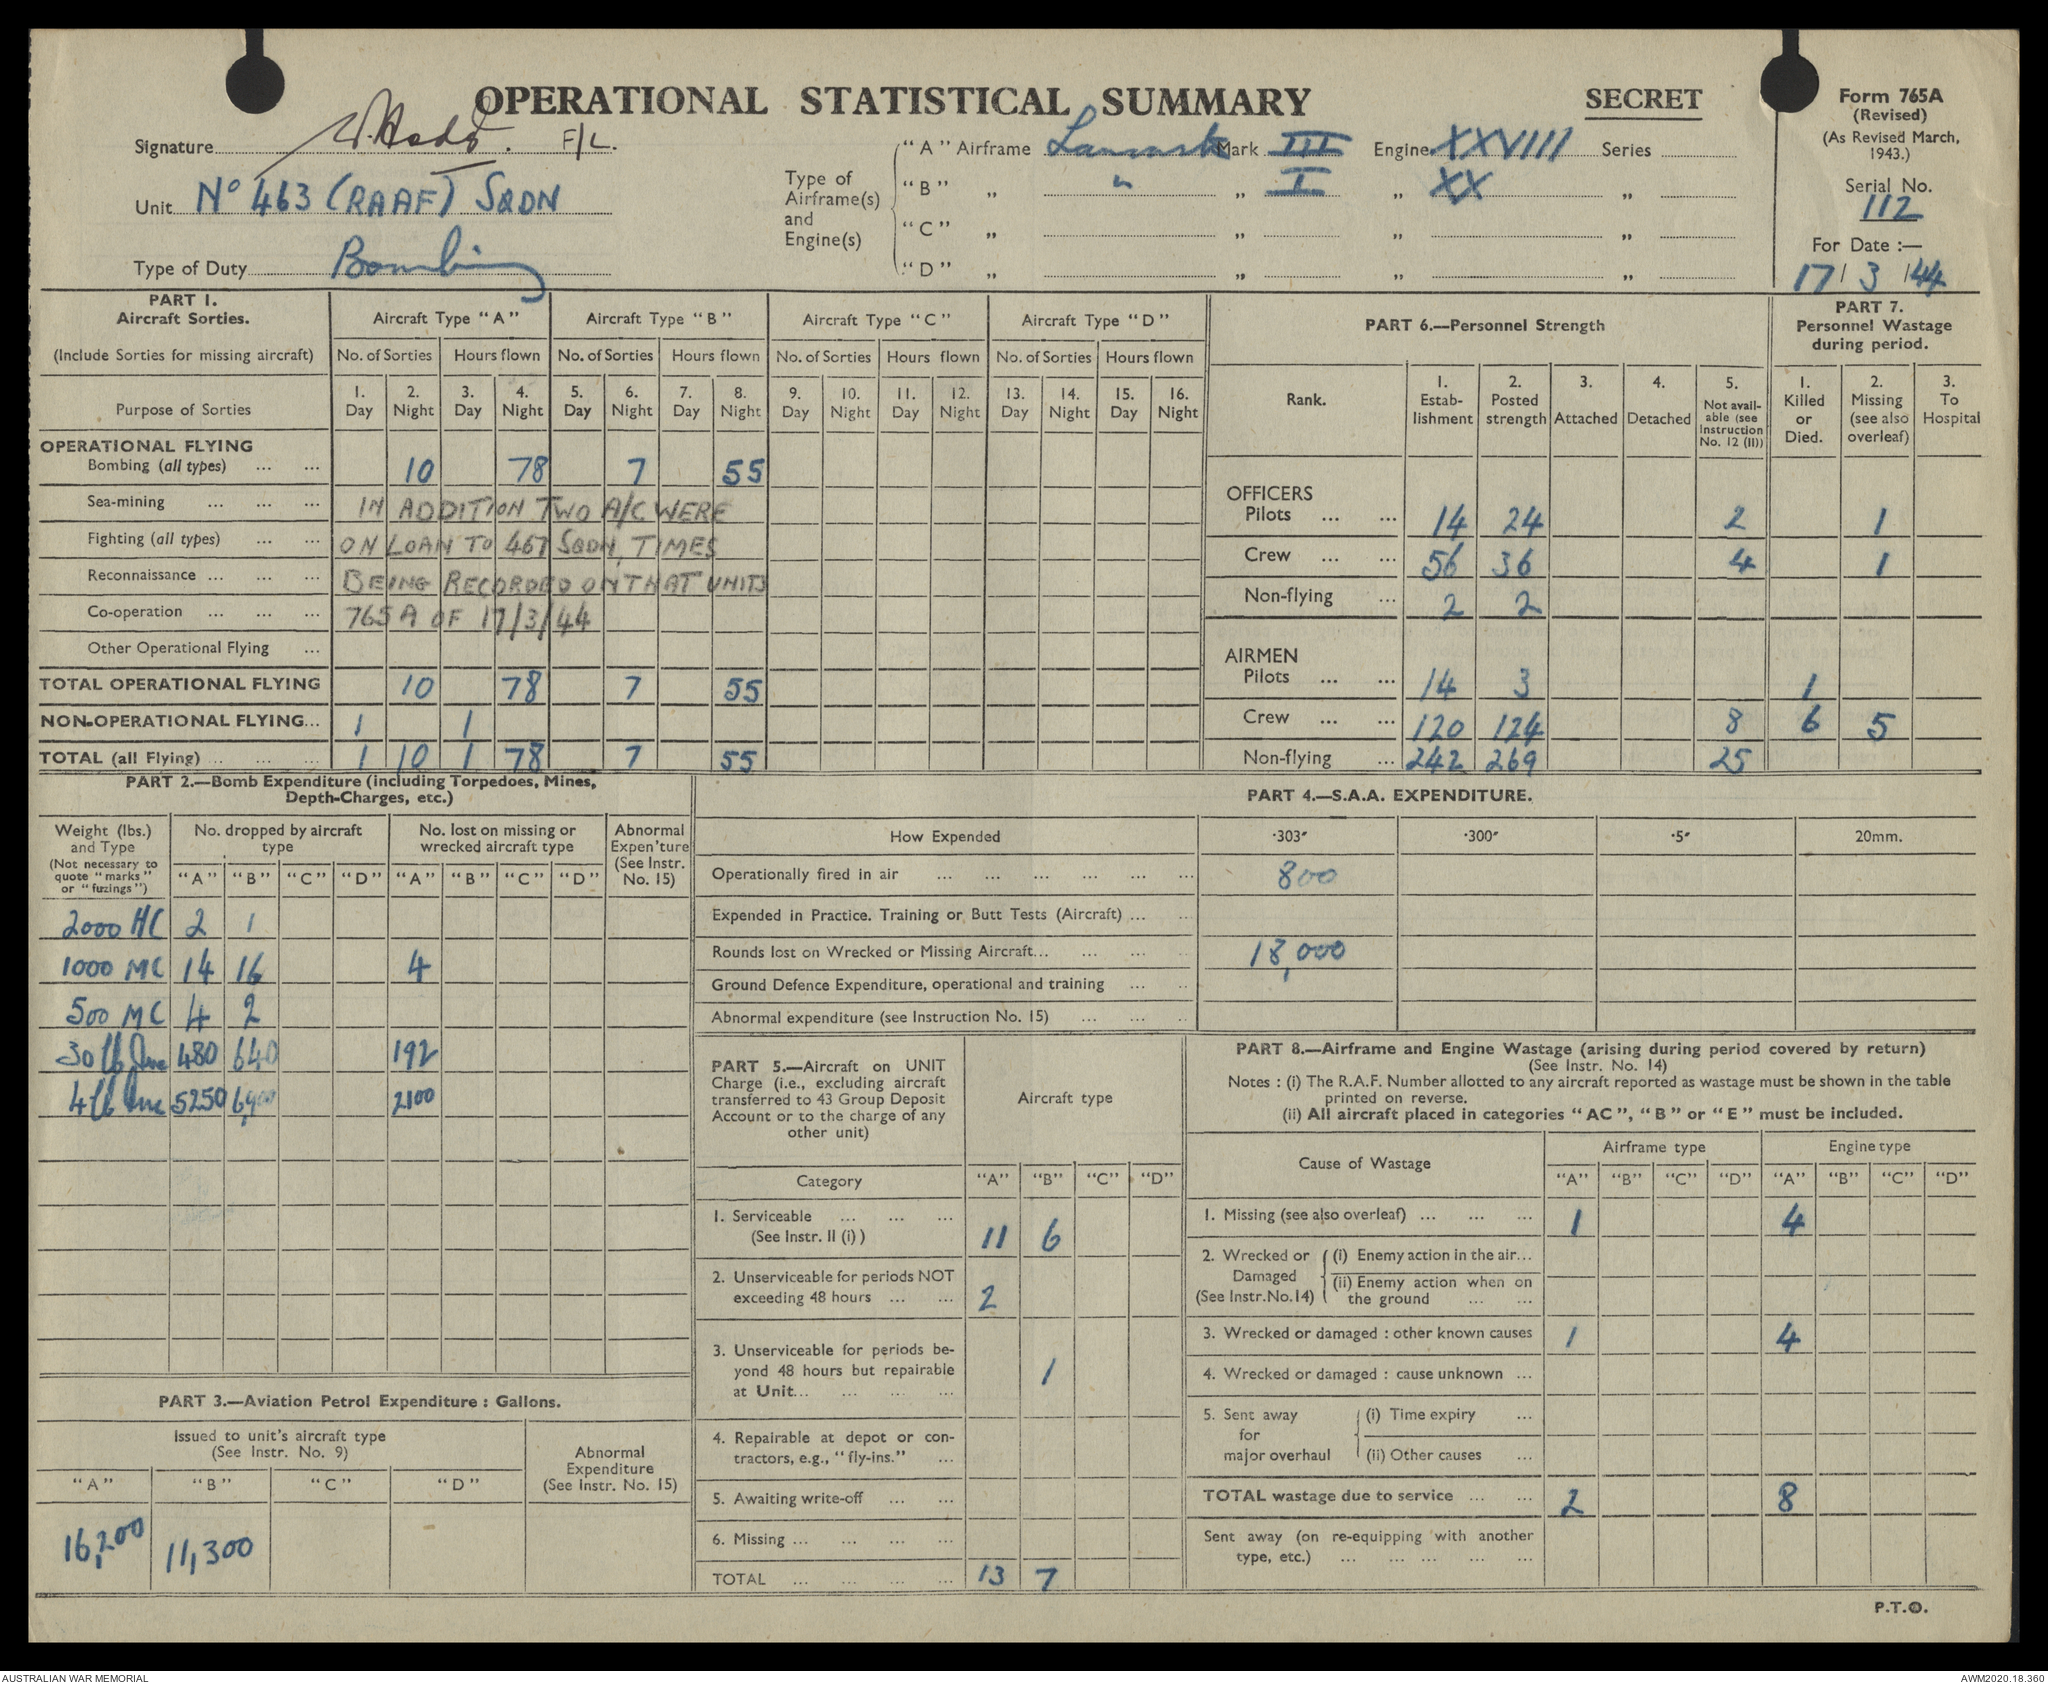 OPERATIONAL STATISTICAL SUMMARY
SECRET
Form 765A
(Revised)
(As Revised March,
1943.)
Serial No.
112
For Date :—
17/ 3 /44
Signature F/L.
Unit No 463 (RAAF) SQDN
Type of Duty Bombing
Type of
Airframe(s)
and
Engine(s)
"A" Airframe Mark III Engine XXVIII Series
"B" „ " „ I „ XX „
"C" „ „ „ „
"D" „ „ „ „
PART 1.
Aircraft Sorties.
(Include Sorties for missing aircraft)
Aircraft Type "A" Aircraft Type "B" Aircraft Type "C" Aircraft Type "D"
No. of Sorties Hours flown No. of Sorties Hours flown No. of Sorties Hours flown No. of Sorties Hours flown
Purpose of Sorties
1. 2. 3. 4. 5. 6. 7. 8. 9. 10. 11. 12. 13. 14. 15. 16.
Day Night Day Night Day Night Day Night Day Night Day Night Day Night Day Night
OPERATIONAL FLYING
Bombing (all types) ... ... 10 78 7 55
Sea-mining ... ... ... IN ADDITION TWO A/C WERE
Fighting (all types) ... ... ON LOAN TO 467 SQDN, TIMES
Reconnaissance ... ... ... BEING RECORDED ON THAT UNITS
Co-operation ... ... ... 765A OF 17/3/44
Other Operational Flying ...
TOTAL OPERATIONAL FLYING 10 78 7 55
NON-OPERATIONAL FLYING... 1 1
TOTAL (all Flying) ... ... ... 1 10 1 78 7 55
PART 6.—Personnel Strength
Rank.
1. Estab-lishment
2. Posted strength
3. Attached
4. Detached
5. Not avail-able (see Instruction No. 12 (II))
PART 7.
Personnel Wastage
during period.
1. Killed or Died.
2. Missing (see also overleaf)
3. To Hospital
OFFICERS
Pilots ... ... 14 24 2 1
Crew ... ... 56 36 4 1
Non-flying ... 2 2
AIRMEN
Pilots ... ... 14 3 1
Crew ... ... 120 124 8 6 5
Non-flying ... 242 269 25
PART 2.—Bomb Expenditure (including Torpedoes, Mines,
Depth-Charges, etc.)
Weight (lbs.)
and Type
(Not necessary to
quote "marks"
or "fuzings")
No. dropped by aircraft
type
No. lost on missing or
wrecked aircraft type
Abnormal
Expen'ture
(See Instr.
No. 15)
"A" "B" "C" "D" "A" "B" "C" "D"
2000 HC 2 1
1000 MC 14 16 4
500 MC 4 2
30 lb Inc 480 640 192
4 lb Inc 5250 6,900 2100
PART 3.—Aviation Petrol Expenditure : Gallons.
Issued to unit's aircraft type
(See Instr. No. 9)
Abnormal
Expenditure
(See Instr. No. 15)
"A" "B" "C" "D"
16,200 11,300
PART 4.—S.A.A. EXPENDITURE.
How Expended ·303″ ·300″ ·5″ 20mm.
Operationally fired in air ... ... ... ... ... ... 800
Expended in Practice. Training or Butt Tests (Aircraft) ... ..
Rounds lost on Wrecked or Missing Aircraft... ... ... .. 18,000
Ground Defence Expenditure, operational and training ... ..
Abnormal expenditure (see Instruction No. 15) ... ... ..
PART 5.—Aircraft on UNIT
Charge (i.e., excluding aircraft
transferred to 43 Group Deposit
Account or to the charge of any
other unit)
Aircraft type
Category "A" "B" "C" "D"
1. Serviceable ... ... ...
(See Instr. II (i) ) 11 6
2. Unserviceable for periods NOT
exceeding 48 hours ... ... 2
3. Unserviceable for periods be-
yond 48 hours but repairable 1
at Unit... ... ... ...
4. Repairable at depot or con-
tractors, e.g., "fly-ins." ...
5. Awaiting write-off ... ...
6. Missing ... ... ... ...
TOTAL ... ... ... ... 13 7
PART 8.—Airframe and Engine Wastage (arising during period covered by return)
(See Instr. No. 14)
Notes : (i) The R.A.F. Number allotted to any aircraft reported as wastage must be shown in the table
printed on reverse.
(ii) All aircraft placed in categories "AC", "B" or "E" must be included.
Cause of Wastage
Airframe type Engine type
"A" "B" "C" "D" "A" "B" "C" "D"
1. Missing (see also overleaf) ... ... ... 1 4
2. Wrecked or
Damaged
(See Instr.No.14)
(i) Enemy action in the air...
(ii) Enemy action when on
the ground ... ...
3. Wrecked or damaged : other known causes 1 4
4. Wrecked or damaged : cause unknown ...
5. Sent away
for
major overhaul
(i) Time expiry ...
(ii) Other causes ...
TOTAL wastage due to service ... ... 2 8
Sent away (on re-equipping with another
type, etc.) ... ... ... ... ...
P.T.O.
AUSTRALIAN WAR MEMORIAL
AWM2020.18.360